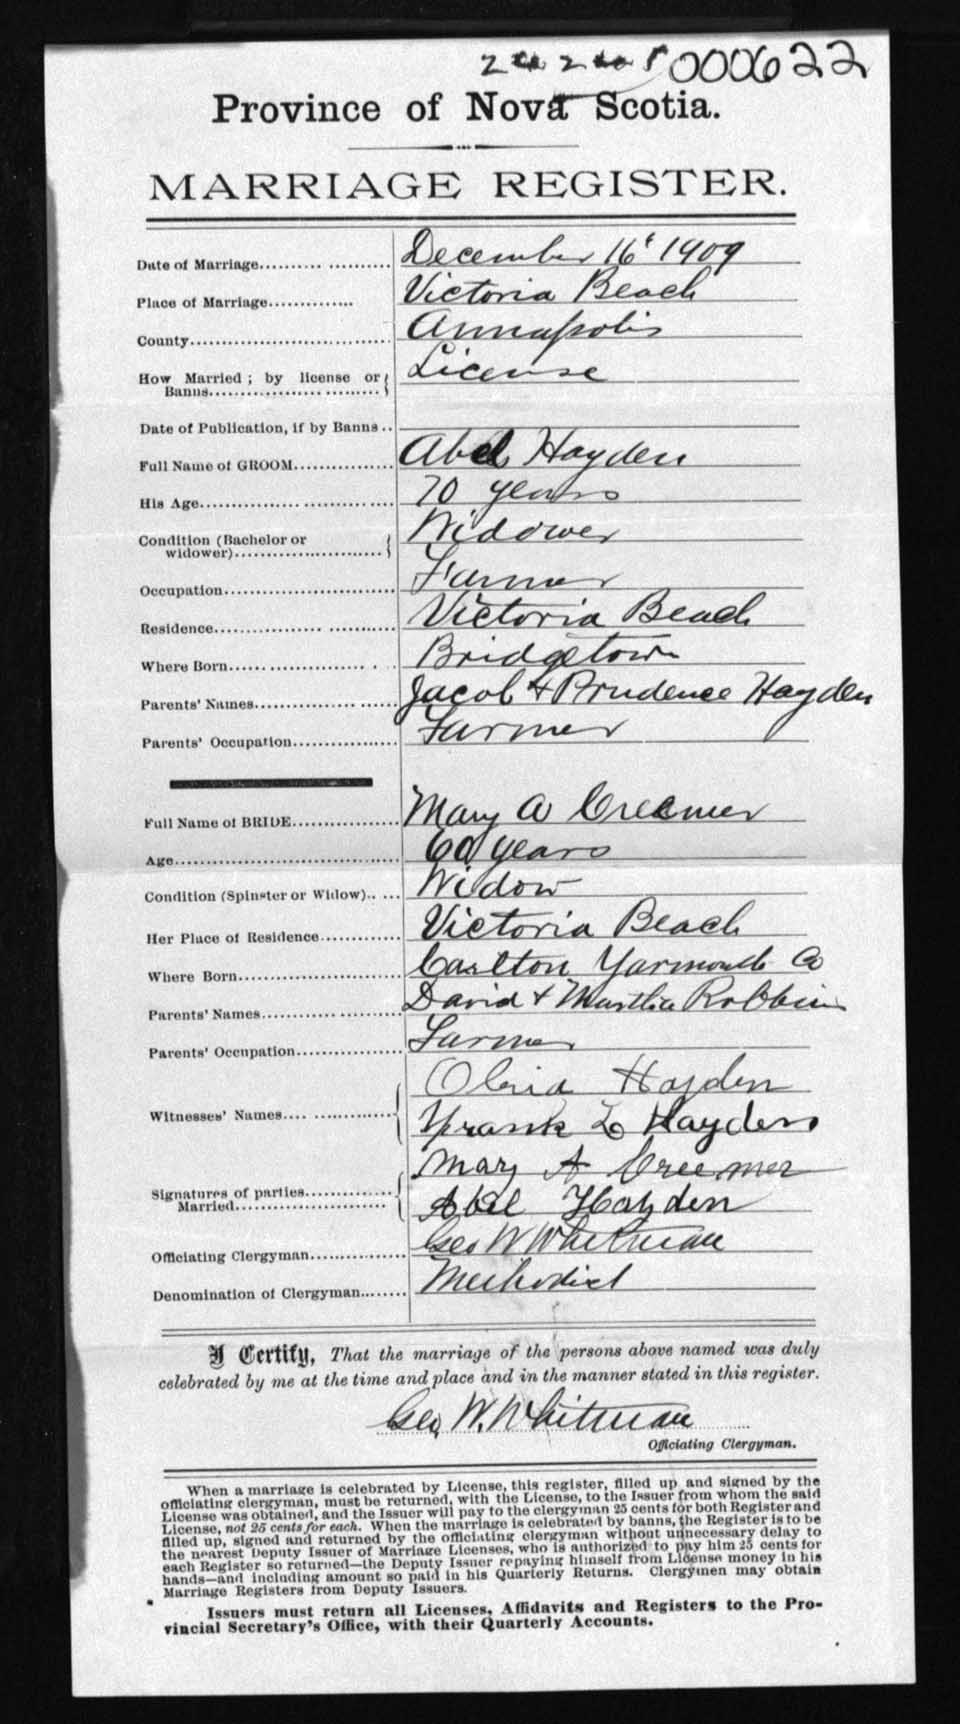 000622
Province of Nova Scotia.
MARRIAGE REGISTER.
Date of Marriage.................. December 16t 1909
Place of Marriage............. Victoria Beach
County.............................. Annapolis
How Married ; by license or License
Banns..............................
Date of Publication, if by Banns ..
Full Name of GROOM............... Abel Hayden
His Age.............................. 70 years
Condition (Bachelor or Widower
widower)..........................
Occupation.......................... Farmer
Residence........................... Victoria Beach
Where Born.......................... Bridgetown
Parents' Names....................... Jacob & Prudence Hayden
Parents' Occupation................. Farmer
Full Name of BRIDE................. Mary A Creemer
Age.................................. 60 years
Condition (Spinster or Widow)..... Widow
Her Place of Residence............. Victoria Beach
Where Born......................... Carlton Yarmouth Co
Parents' Names...................... David & Martha Robbins
Parents' Occupation................ Farmer
Hayden
Witnesses' Names..................
Frank L Hayden
Mary A Creemer
Signatures of parties..............
Married........................ Abel Hayden
Officiating Clergyman............... Geo W Whitman
Denomination of Clergyman........ Methodist
I Certify, That the marriage of the persons above named was duly
celebrated by me at the time and place and in the manner stated in this register.
Geo. W. Whitman
Officiating Clergyman.
When a marriage is celebrated by License, this register, filled up and signed by the
officiating clergyman, must be returned, with the License, to the Issuer from whom the said
License was obtained, and the Issuer will pay to the clergyman 25 cents for both Register and
License, not 25 cents for each. When the marriage is celebrated by banns, the Register is to be
filled up, signed and returned by the officiating clergyman without unnecessary delay to
the nearest Deputy Issuer of Marriage Licenses, who is authorized to pay him 25 cents for
each Register so returned—the Deputy Issuer repaying himself from License money in his
hands—and including amount so paid in his Quarterly Returns. Clergymen may obtain
Marriage Registers from Deputy Issuers.
Issuers must return all Licenses, Affidavits and Registers to the Pro-
vincial Secretary's Office, with their Quarterly Accounts.